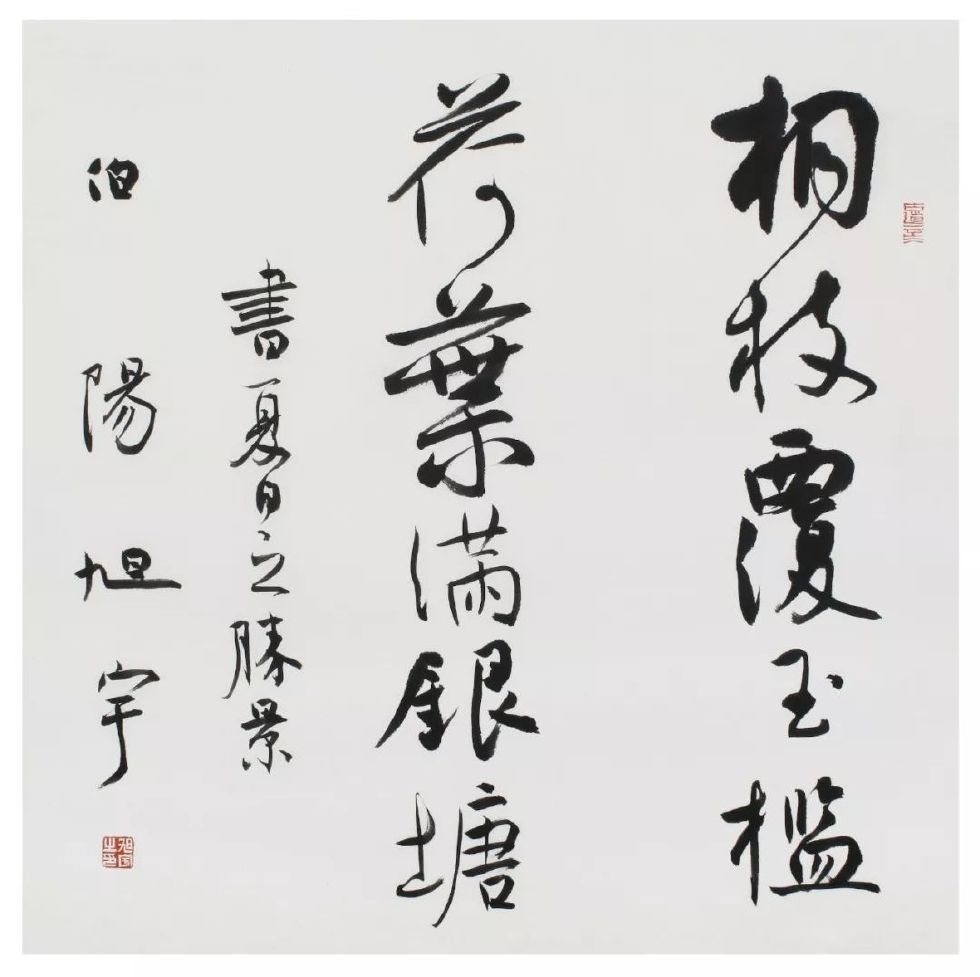 桐枝覆玉檻
荷葉滿銀塘
書夏日之勝景
泊陽旭宇